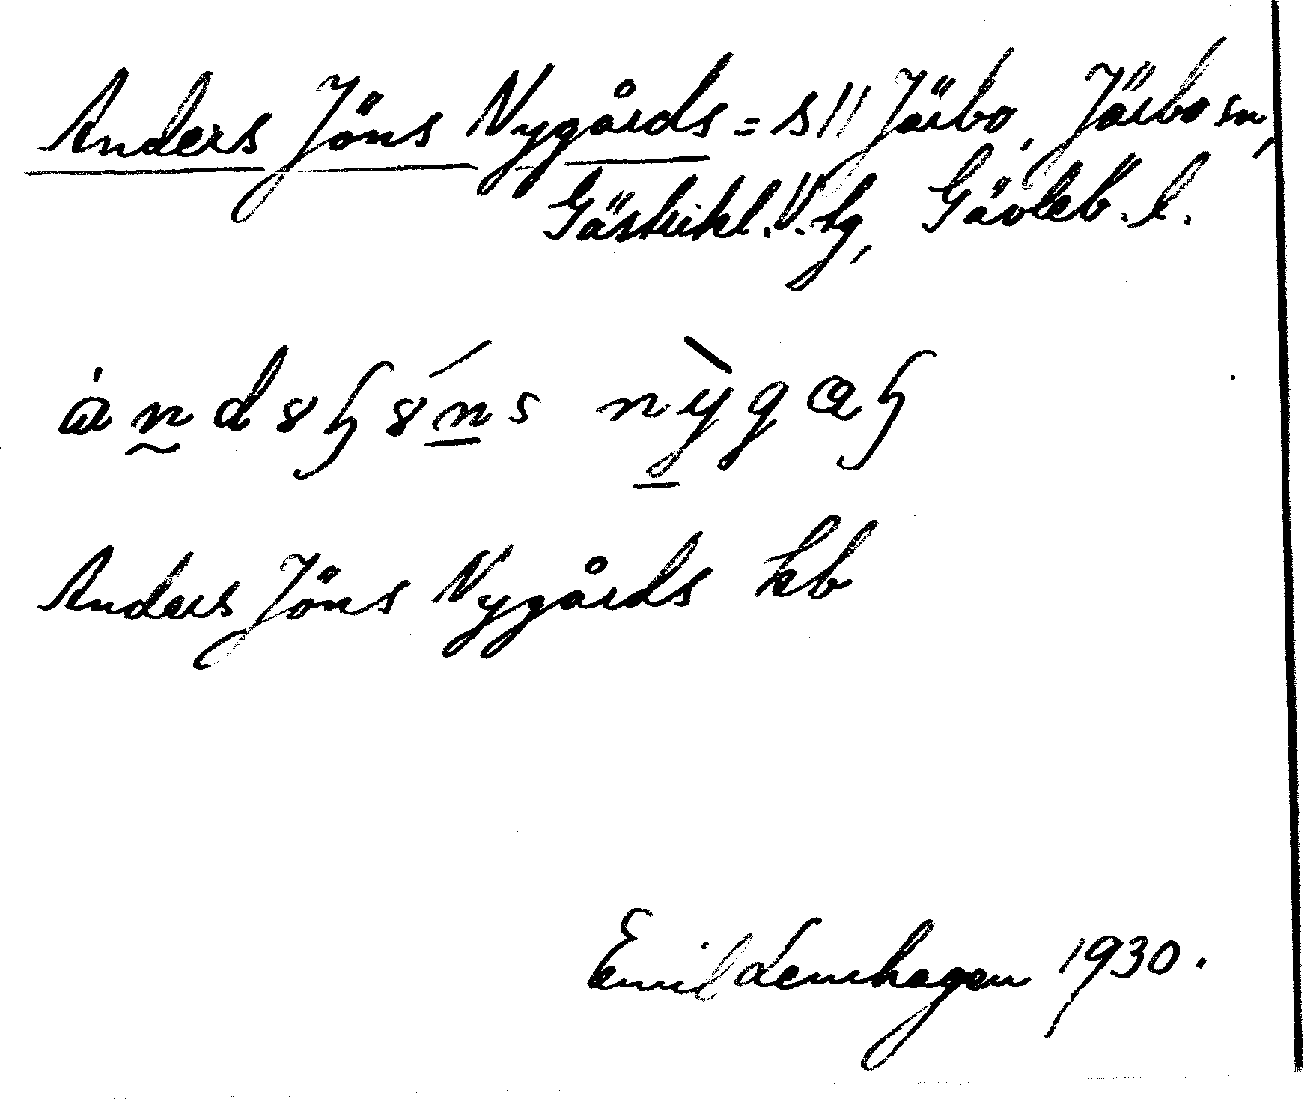 Anders Jöns Nygårds = s11 Järbo, Järbo sn,
Gästrikl. V. tg, Gävleb. l.
Anders Jöns Nygårds kb
Emil Lenhagen 1930.